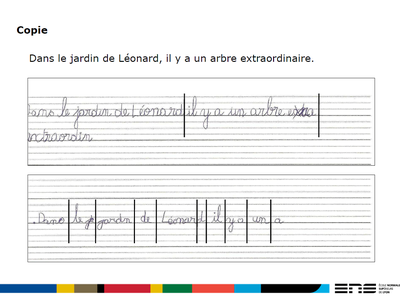 Copie
Dans le jardin de Léonard, il y a un arbre extraordinaire.
Dans le jardin de Léonard il y a un arbre
extraordin
Dans le jardin de Léonard il y a un a
ENS
ÉCOLE NORMALE
SUPÉRIEURE
DE LYON